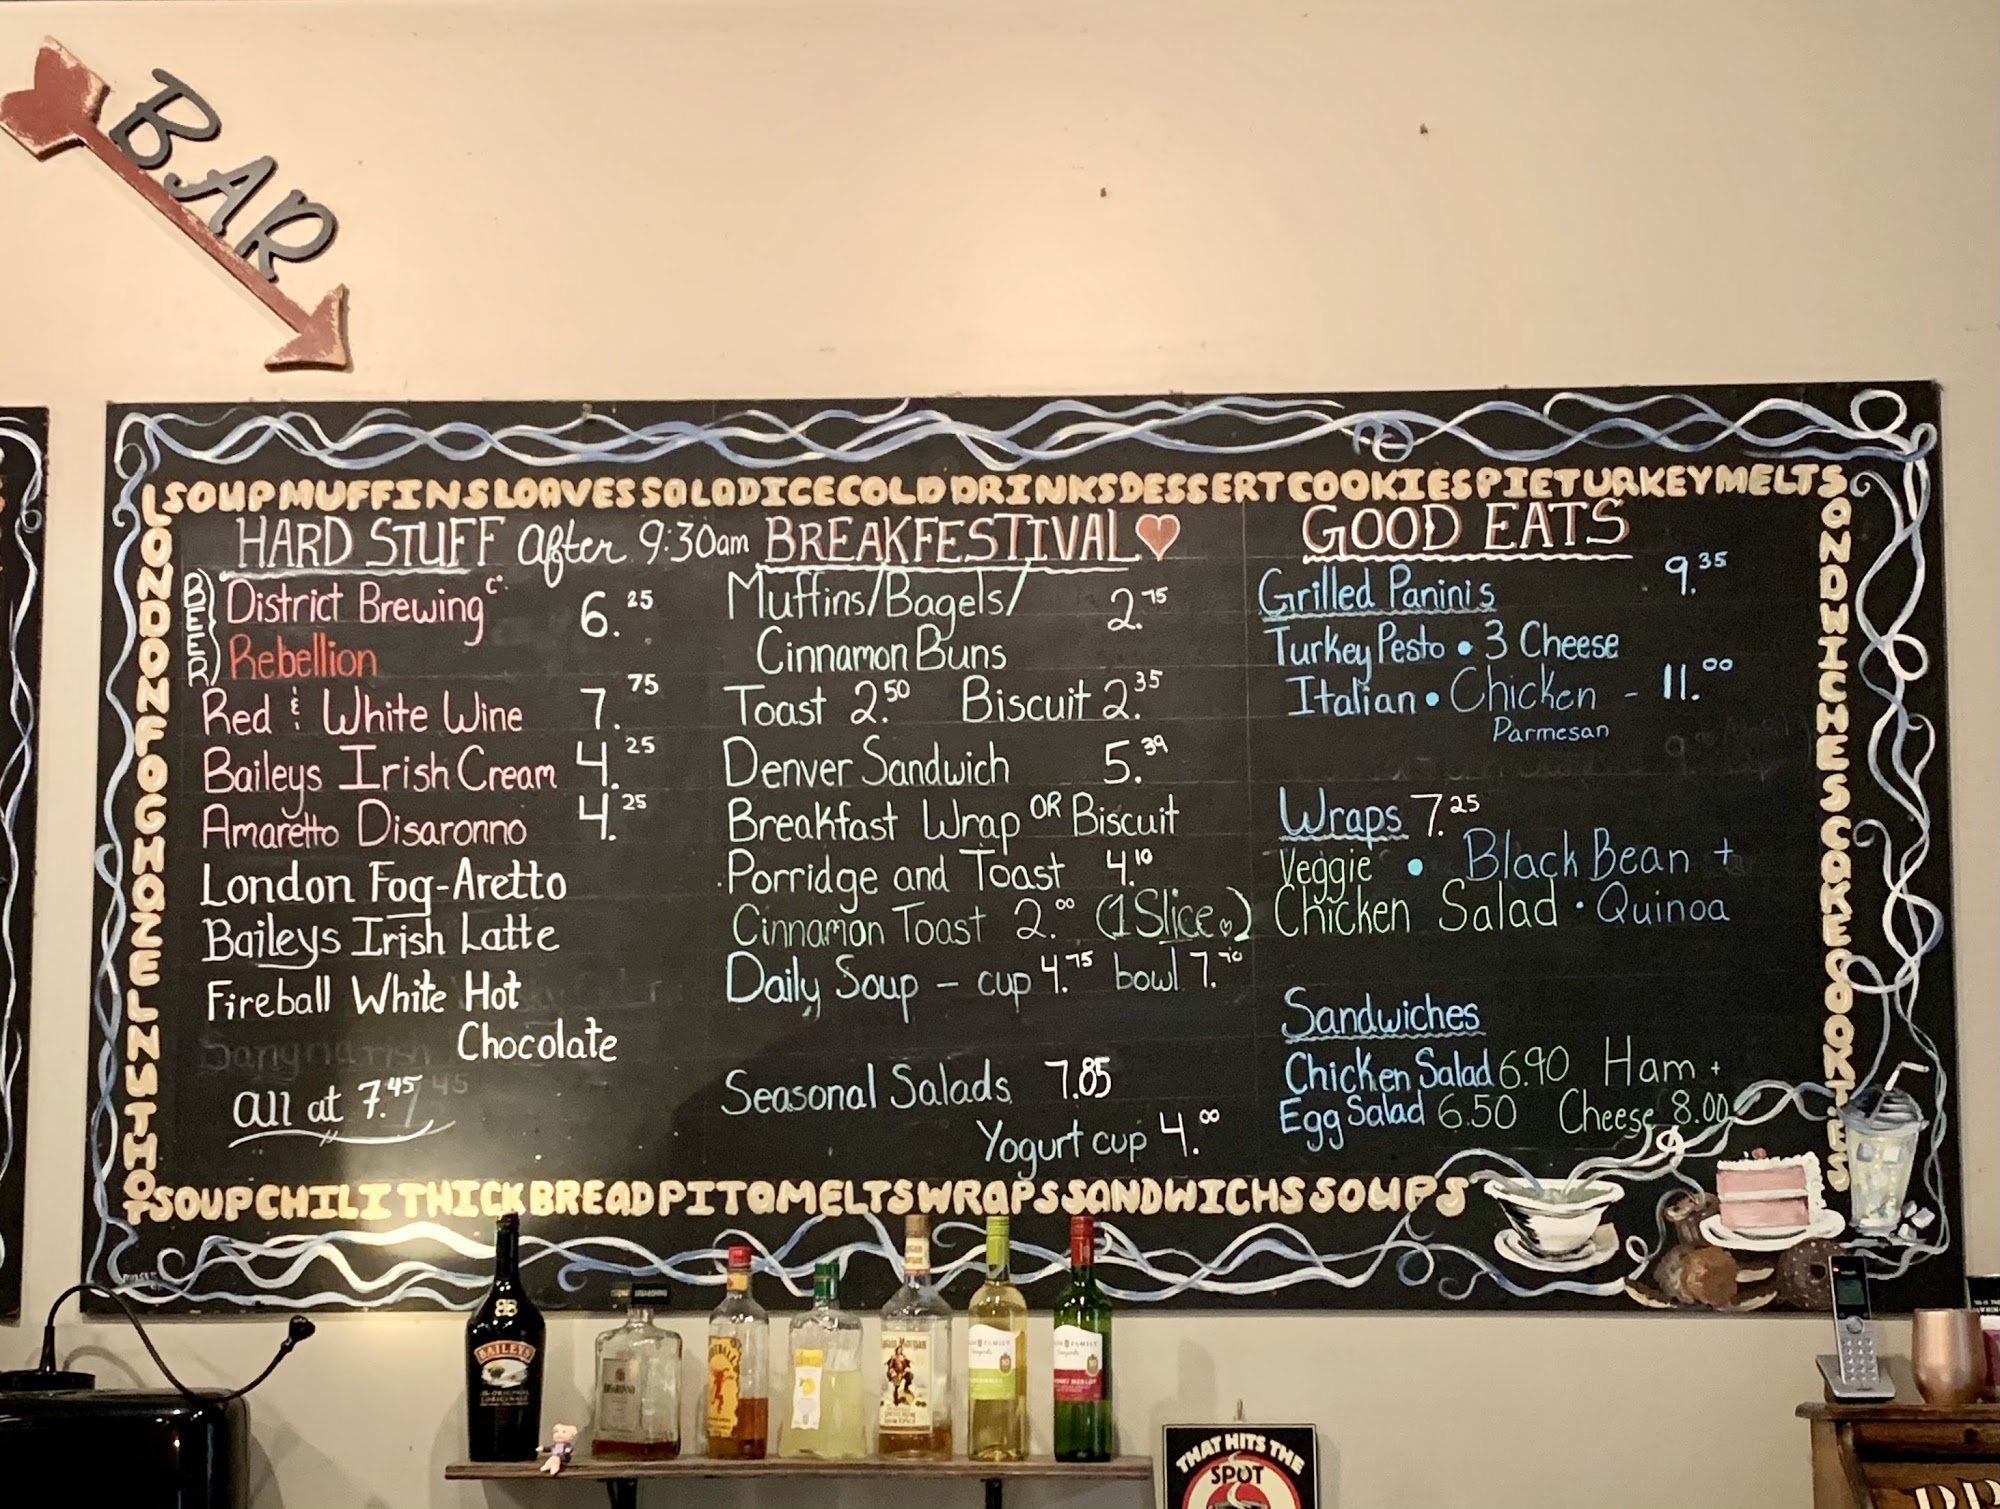 BAR
SOUPMUFFINSLOAVESSALADICECOLDDRINKSDESSERTCOOKIESPIETURKEYMELTS
LONDONFOGHAZELNUTHOT
HARD STUFF after 9:30am
BEER
District Brewing C. 6.25
Rebellion
Red & White Wine 7.75
Baileys Irish Cream 4.25
Amaretto Disaronno 4.25
London Fog-Aretto
Baileys Irish Latte
Fireball White Hot
Chocolate
Sangria
all at 7.45
BREAKFESTIVAL
Muffins/Bagels/ 2.75
Cinnamon Buns
Toast 2.50 Biscuit 2.35
Denver Sandwich 5.39
Breakfast Wrap OR Biscuit
Porridge and Toast 4.10
Cinnamon Toast 2.00 (1 Slice)
Daily Soup - cup 4.75 bowl 7.70
Seasonal Salads 7.85
Yogurt cup 4.00
GOOD EATS
Grilled Panini's 9.35
Turkey Pesto • 3 Cheese
Italian • Chicken - 11.00
Parmesan
Wraps 7.25
Veggie • Black Bean +
Chicken Salad • Quinoa
Sandwiches
Chicken Salad 6.90 Ham +
Egg Salad 6.50 Cheese 8.00
SOUPCHILITHICKBREADPITAMELTSWRAPSSANDWICHSSOUPS
BAILEYS
FIREBALL
Captain Morgan
THAT HITS THE
SPOT